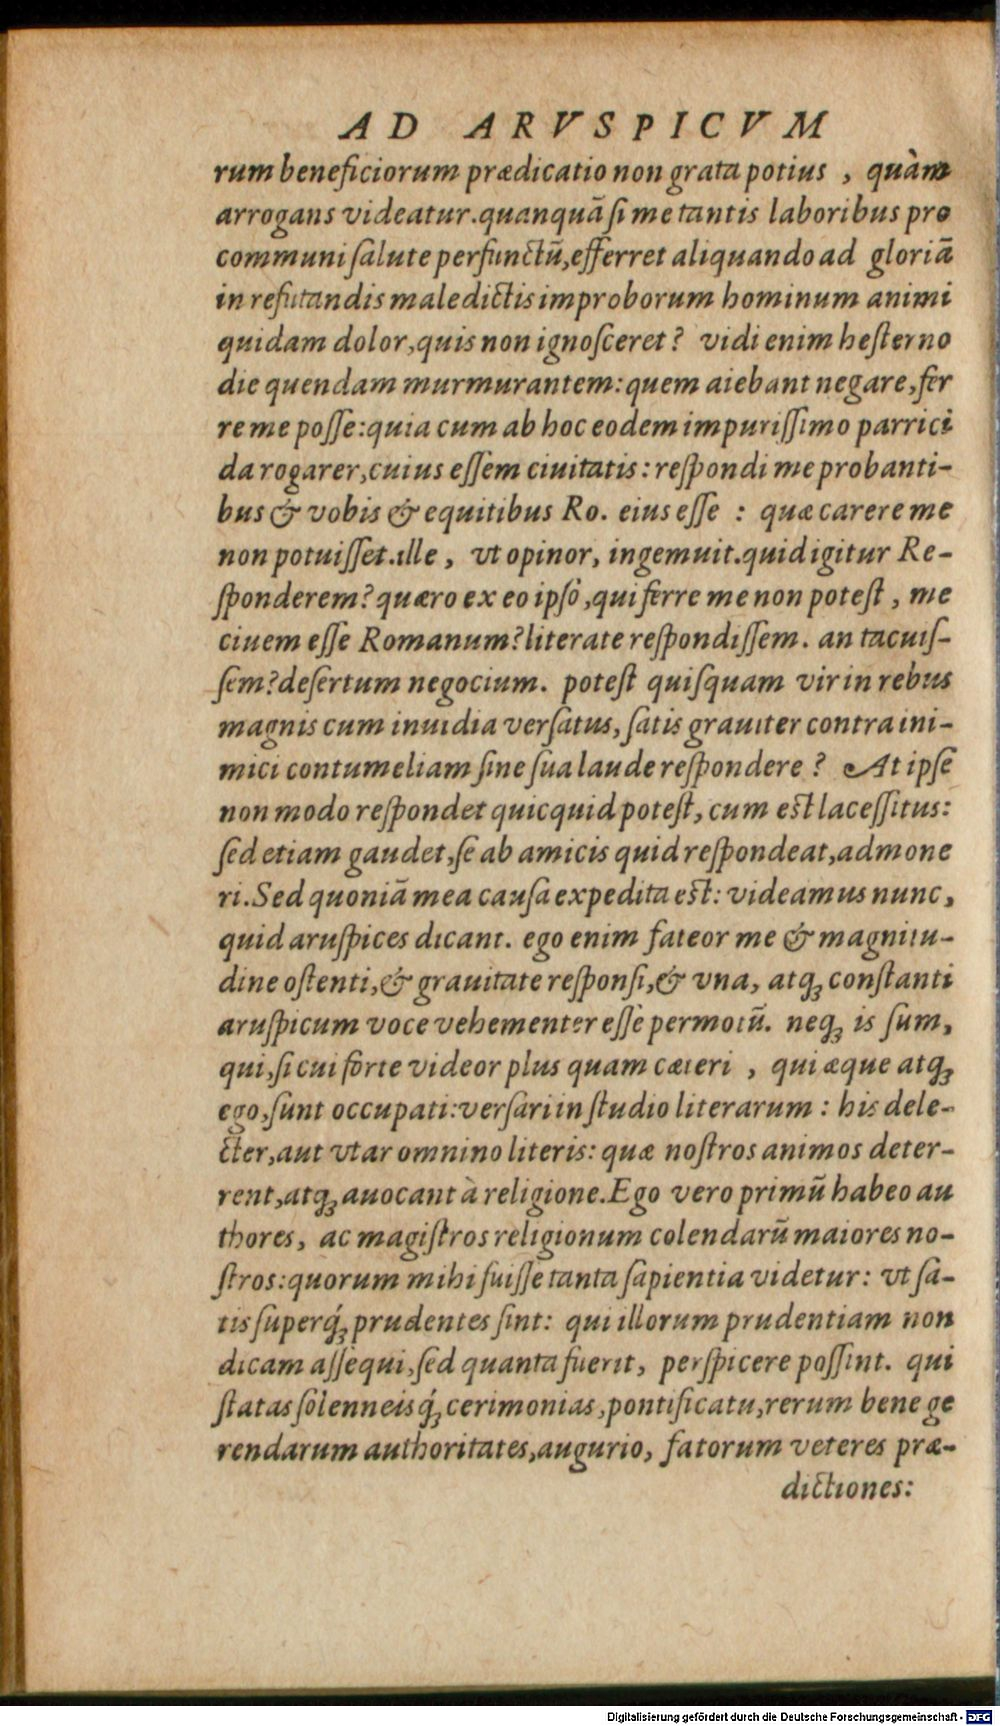 AD ARVSPICVM
rum beneficiorum prædicatio non grata potius , quàm
arrogans videatur.quanquã ſi me tantis laboribus pro
communi ſalute perfunctũ,efferret aliquando ad gloriã
in refutandis maledictis improborum hominum animi
quidam dolor,quis non ignoſceret? vidi enim heſterno
die quendam murmurantem:quem aiebant negare,fer
re me poſſe:quia cum ab hoc eodem impuriſſimo parrici
da rogarer,cuius eſſem ciuitatis:reſpondi me probanti-
bus & vobis & equitibus Ro. eius eſſe : quæ carere me
non potuiſſet.ille , vt opinor, ingemuit.quid igitur Re-
ſponderem?quæro ex eo ipſo,qui ferre me non poteſt , me
ciuem eſſe Romanum?literate reſpondiſſem. an tacuiſ-
ſem?deſertum negocium. poteſt quiſquam vir in rebus
magnis cum inuidia verſatus,ſatis grauiter contra ini-
mici contumeliam ſine ſua laude reſpondere ? At ipſe
non modo reſpondet quicquid poteſt, cum eſt laceſſitus:
ſed etiam gaudet,ſe ab amicis quid reſpondeat,admone
ri.Sed quoniã mea cauſa expedita eſt: videamus nunc,
quid aruſpices dicant. ego enim fateor me & magnitu-
dine oſtenti,& grauitate reſponſi,& vna, atq; conſtanti
aruſpicum voce vehementer eſſe permotũ. neq; is ſum,
qui,ſi cui forte videor plus quam cæteri , qui æque atq;
ego,ſunt occupati:verſari in ſtudio literarum : his dele-
cter,aut vtar omnino literis: quæ noſtros animos deter-
rent,atq; auocant à religione.Ego vero primũ habeo au
thores, ac magiſtros religionum colendarũ maiores no-
ſtros:quorum mihi fuiſſe tanta ſapientia videtur: vt ſa-
tis ſuperq́; prudentes ſint: qui illorum prudentiam non
dicam aſſequi,ſed quanta fuerit, perſpicere poſſint. qui
ſtatas ſolenneisq́; cerimonias,pontificatu,rerum bene ge
rendarum authoritates,augurio, fatorum veteres præ-
dictiones:
Digitalisierung gefördert durch die Deutsche Forschungsgemeinschaft - DFG